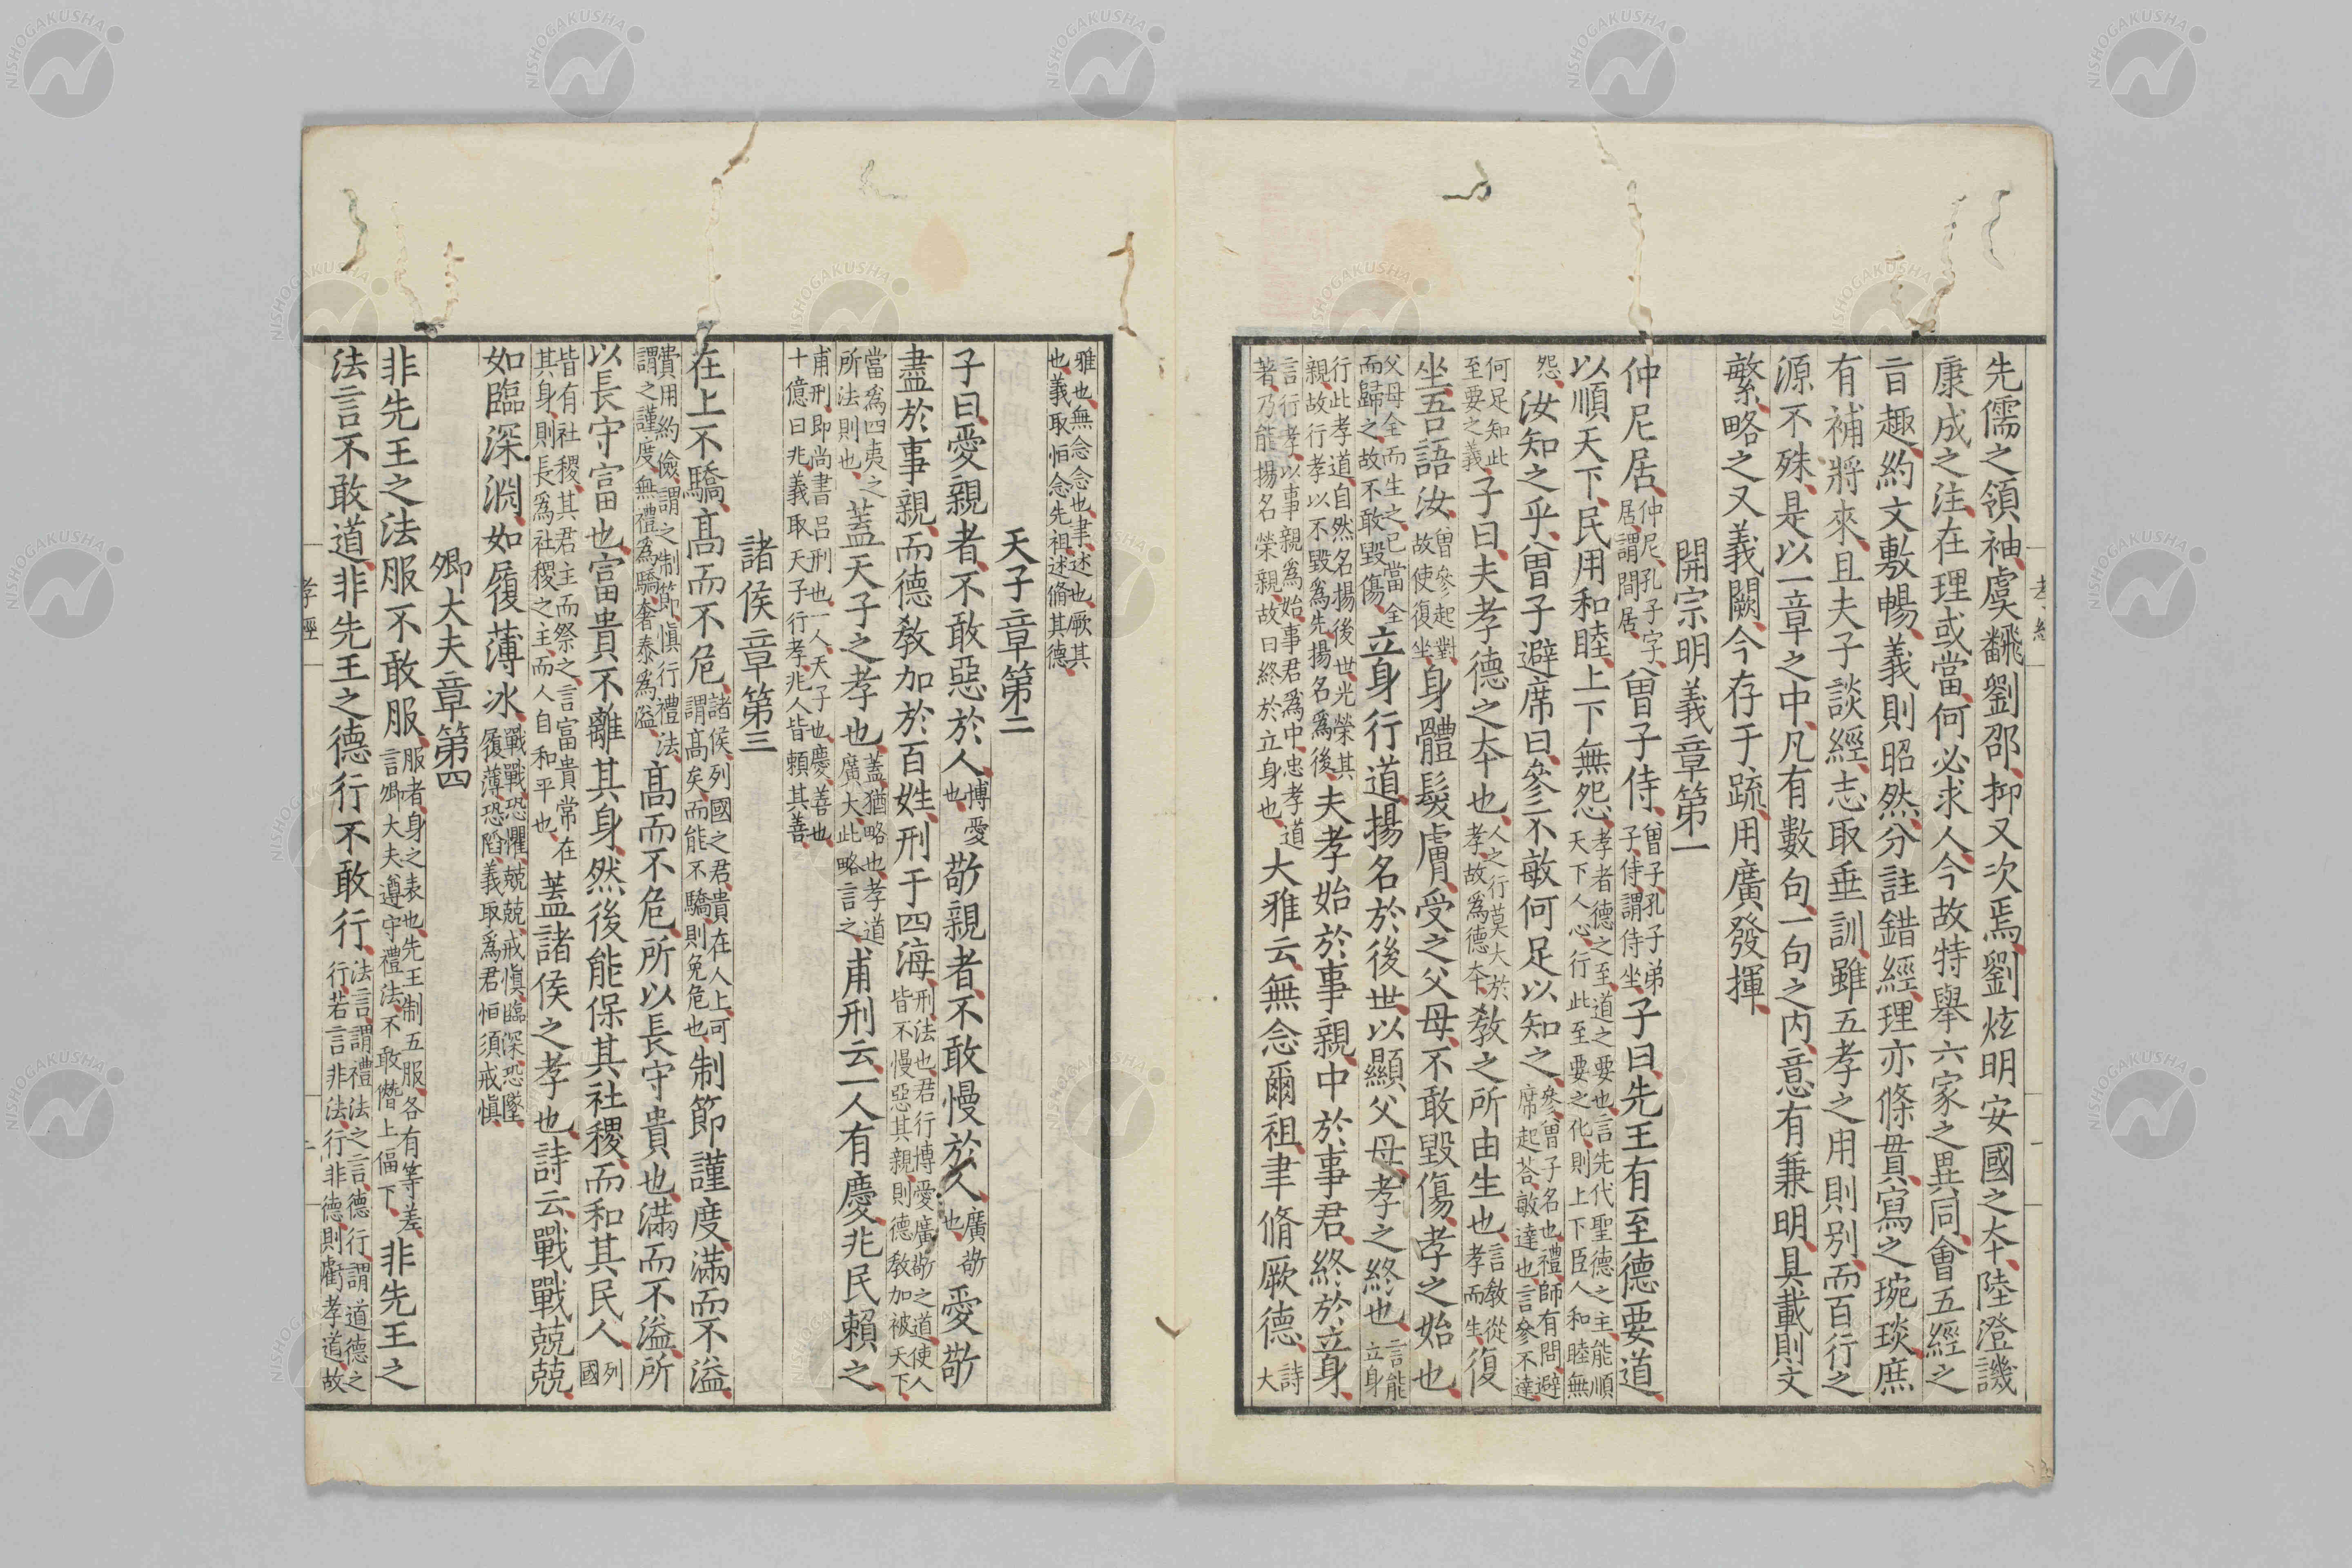 先儒之領袖虞飜劉邵抑又次焉劉炫明安國之夲陸澄譏
康成之注在理或當何必求人今故特舉六家之異同會五經之
旨趣約文敷暢義則昭然分註錯經理亦條貫寫之琬琰庶
有補將來且夫子談經志取垂訓雖五孝之用則別而百行之
源不殊是以一章之中凡有數句一句之內意有兼明具載則文
繁略之又義闕今存于疏用廣發揮
開宗明義章第一
仲尼居仲尼孔子字居謂間居曾子侍曾子孔子弟子侍謂侍坐子曰先王有至德要道
以順天下民用和睦上下無怨孝者德之至道之要也言先代聖德之主能順天下人心行此至要之化則上下臣人和睦無
怨汝知之乎曾子避席曰參不敏何足以知之參曾子名也禮師有問避席起荅敏達也言參不達
何足知此至要之義子曰夫孝德之夲也人之行莫大於孝故爲德夲教之所由生也言教從孝而生復
坐吾語汝曾參起對故使復坐身體髮膚受之父母不敢毀傷孝之始也
父母全而生之已當全而歸之故不敢毀傷立身行道揚名於後世以顯父母孝之終也言能立身
行此孝道自然名揚後世光榮其親故行孝以不毀爲先揚名爲後夫孝始於事親中於事君終於立身
言行孝以事親爲始事君爲中忠孝道著乃能揚名榮親故曰終於立身也大雅云無念爾祖聿脩厥德詩大
雅也無念念也聿述也厥其也義取恒念先祖述脩其德
天子章第二
子曰愛親者不敢惡於人博愛也敬親者不敢慢於人廣敬也愛敬
盡於事親而德教加於百姓刑于四海刑法也君行博愛廣敬之道使人皆不慢惡其親則德教加被天下
當爲四夷之所法則也蓋天子之孝也蓋猶略也孝道廣大此略言之甫刑云一人有慶兆民賴之
甫刑即尚書呂刑也一人天子也慶善也十億曰兆義取天子行孝兆人皆賴其善
諸侯章第三
在上不驕高而不危諸侯列國之君貴在人上可謂高矣而能不驕則免危也制節謹度滿而不溢
費用約儉謂之制節慎行禮法謂之謹度無禮爲驕奢泰爲溢高而不危所以長守貴也滿而不溢所
以長守富也富貴不離其身然後能保其社稷而和其民人列國
皆有社稷其君主而祭之言富貴常在其身則長爲社稷之主而人自和平也蓋諸侯之孝也詩云戰戰兢兢
如臨深淵如履薄冰戰戰恐懼兢兢戒慎臨深恐墜履薄恐陷義取爲君恒須戒慎
卿大夫章第四
非先王之法服不敢服服者身之表也先王制五服各有等差言卿大夫遵守禮法不敢僭上偪下非先王之
法言不敢道非先王之德行不敢行法言謂禮法之言德行謂道德之行若言非法行非德則虧孝道故
孝經